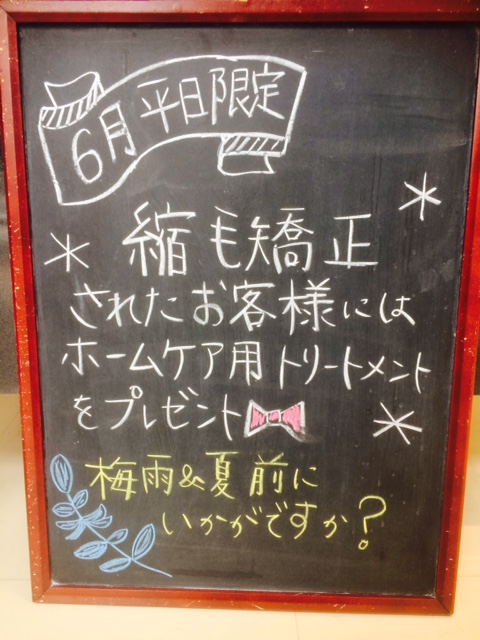 6月平日限定
縮毛矯正
されたお客様には
ホームケア用トリートメント
をプレゼント
梅雨&夏前に
いかがですか?